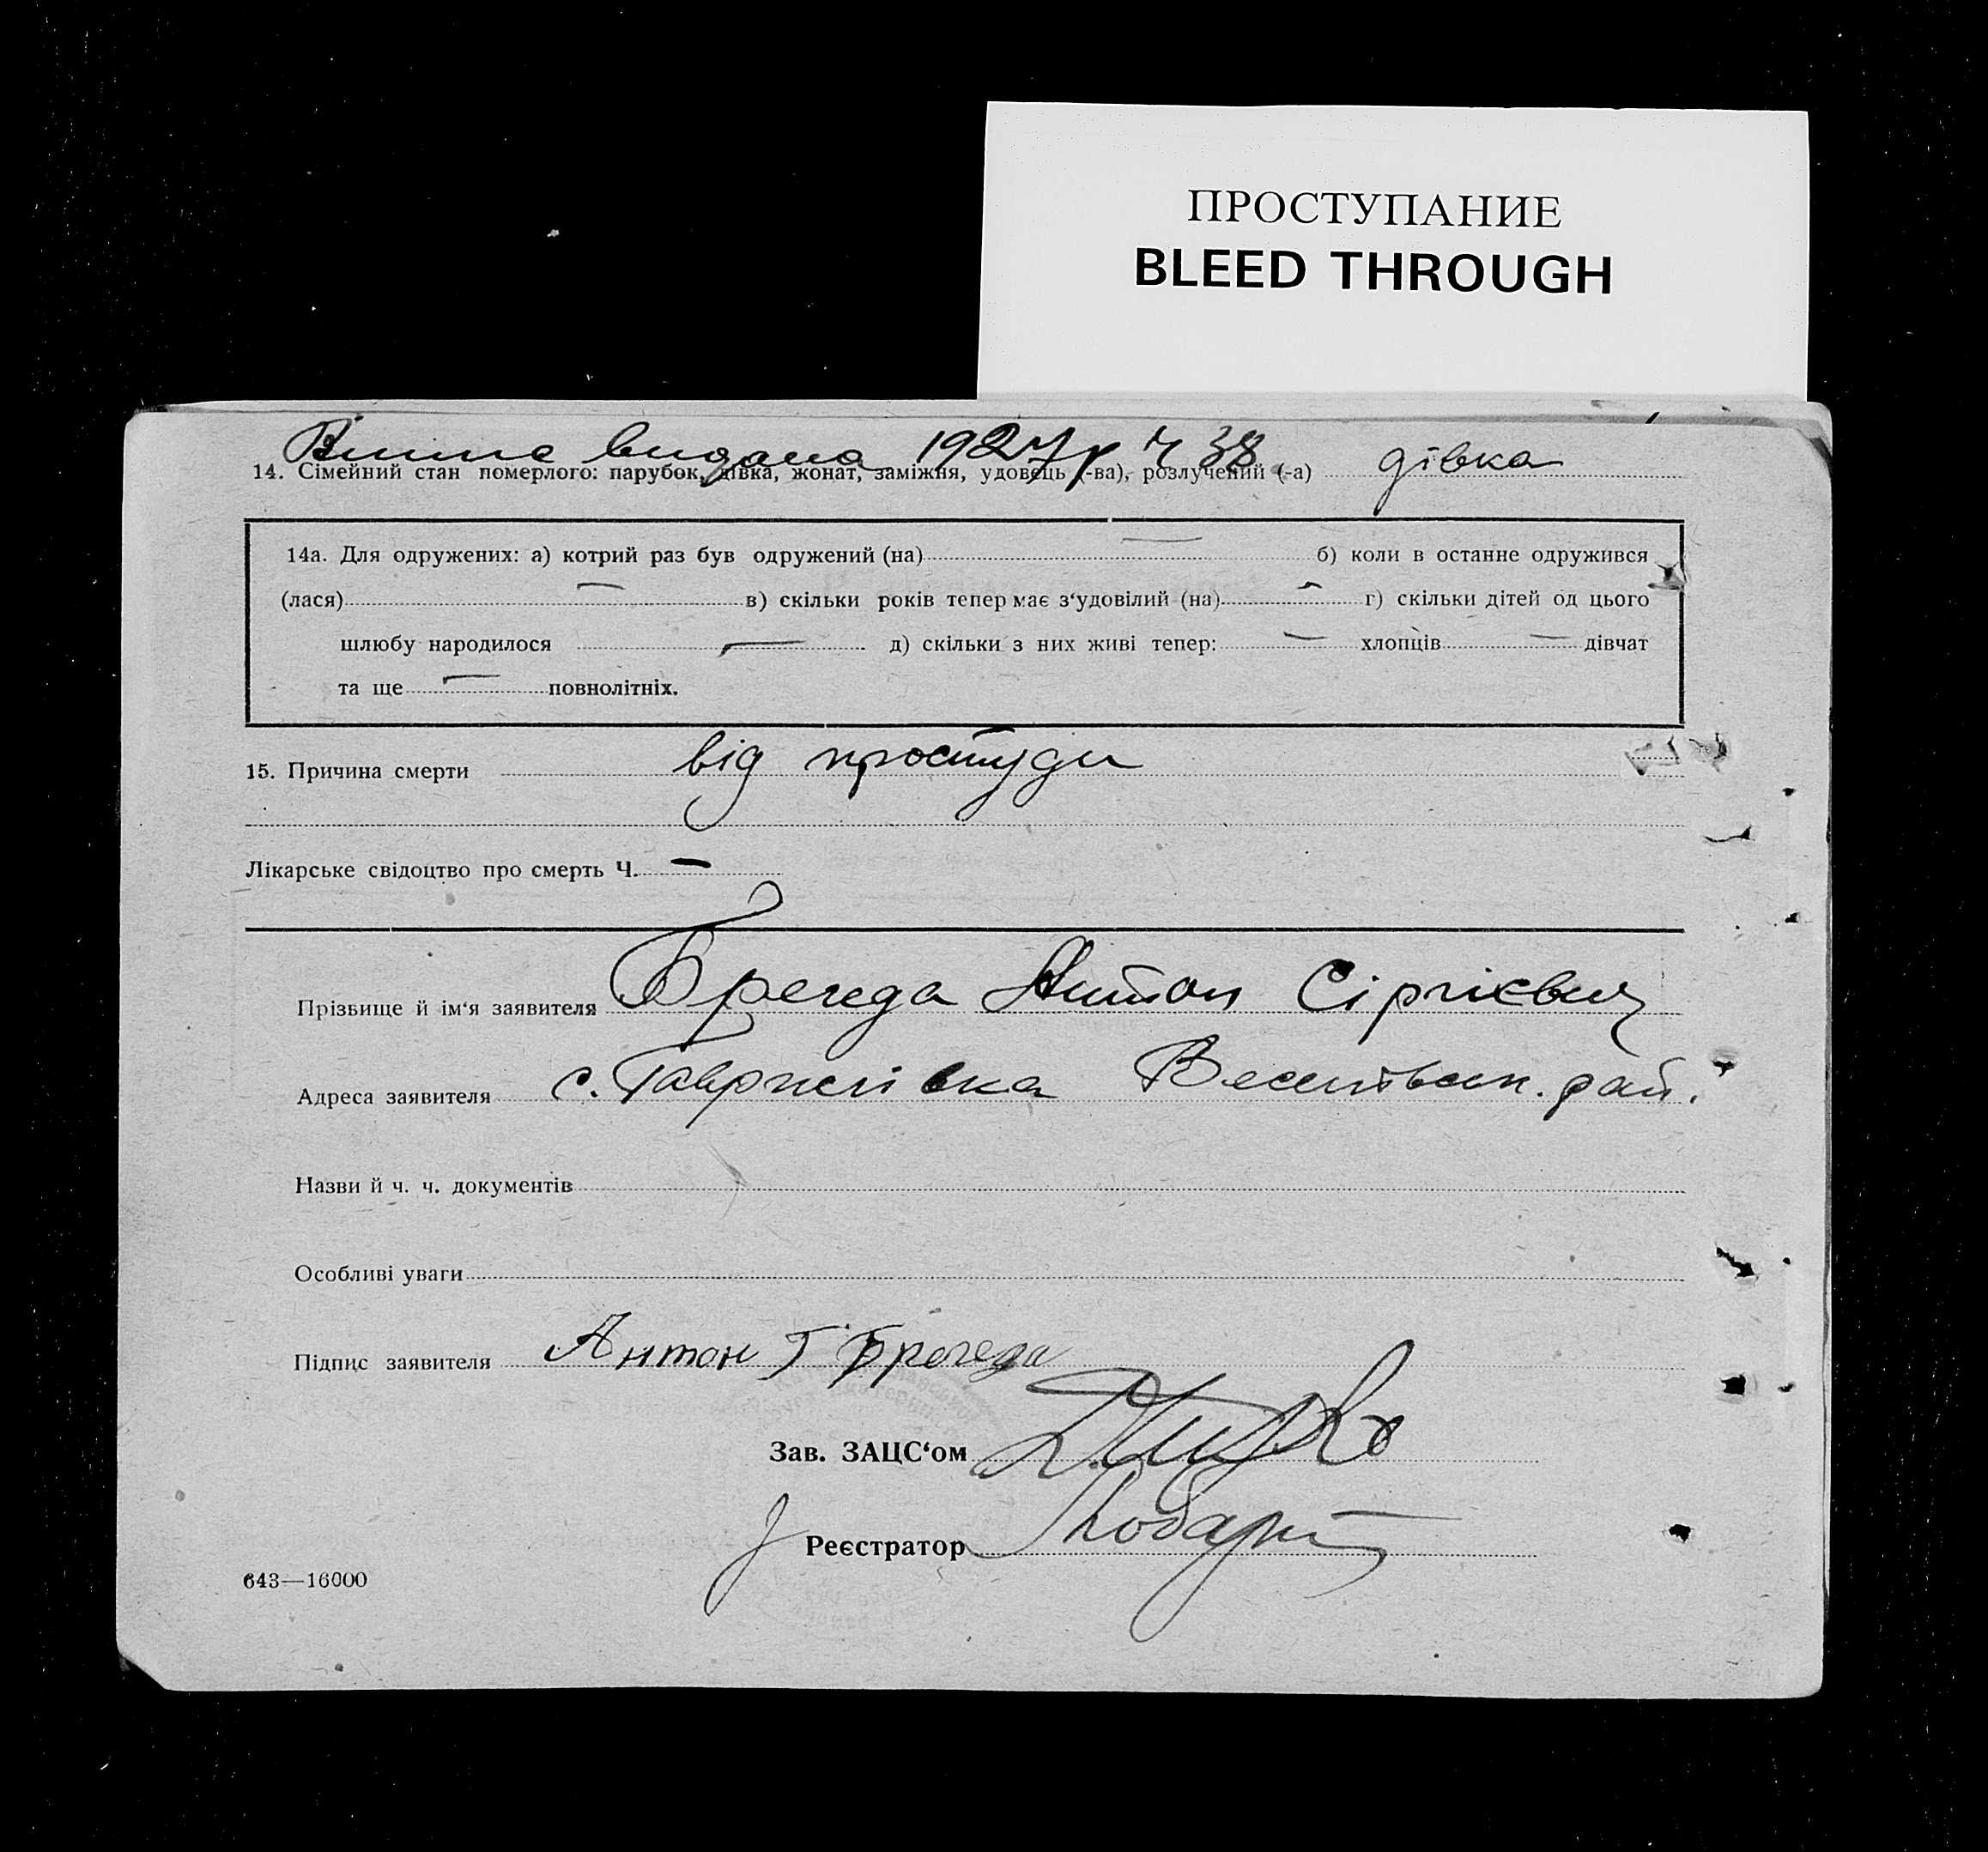 ПРОСТУПАНИЕ
BLEED THROUGH
видана 1927 р ч 38
14. Сімейний стан померлого: парубок, дівка, жонат, заміжня, удовець (-ва), розлучений (-а) дівка
14а. Для одружених: а) котрий раз був одружений (на) — б) коли в останнє одружився
(лася) — в) скільки років тепер має з‘удовілий (на) — г) скільки дітей од цього
шлюбу народилося — д) скільки з них живі тепер: — хлопців — дівчат
та ще — повнолітніх.
15. Причина смерти від простуди
Лікарське свідоцтво про смерть Ч. —
Прізвище й ім‘я заявителя Брегеда Антон Сіргієвич
Адреса заявителя с. рай.
Назви й ч. ч. документів
Особливі уваги
Підпис заявителя Антон Брегеда
Зав. ЗАЦС‘ом
Реєстратор
643—16000